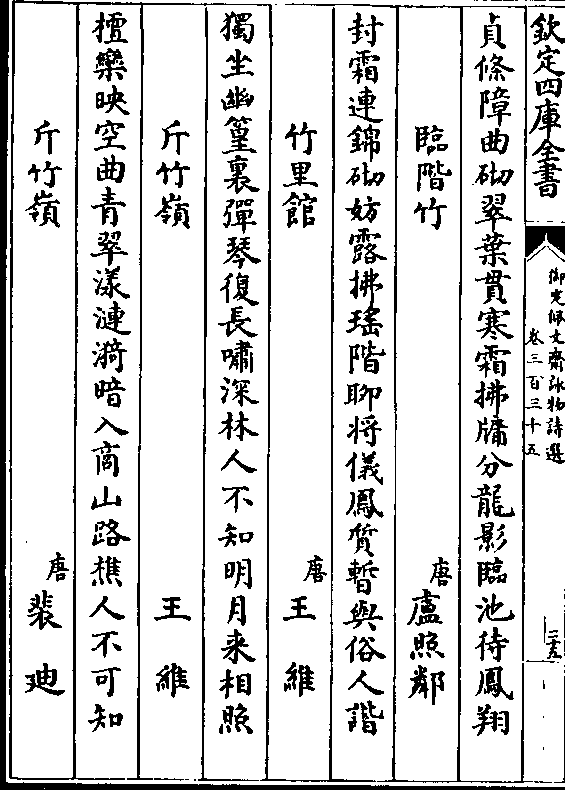 欽定四庫全書
御定佩文齋詠物詩選
卷三百三十五
貞條障曲砌翠葉貫寒霜拂牖分龍影臨池待鳳翔
臨階竹 唐 盧照鄰
封霜連錦砌妨露拂瑤階聊將儀鳳質暫與俗人諧
竹里館 唐 王維
獨坐幽篁裏彈琴復長嘯深林人不知明月来相照
斤竹嶺 王維
檀欒映空曲青翠漾漣漪暗入商山路樵人不可知
斤竹嶺 唐 裴迪